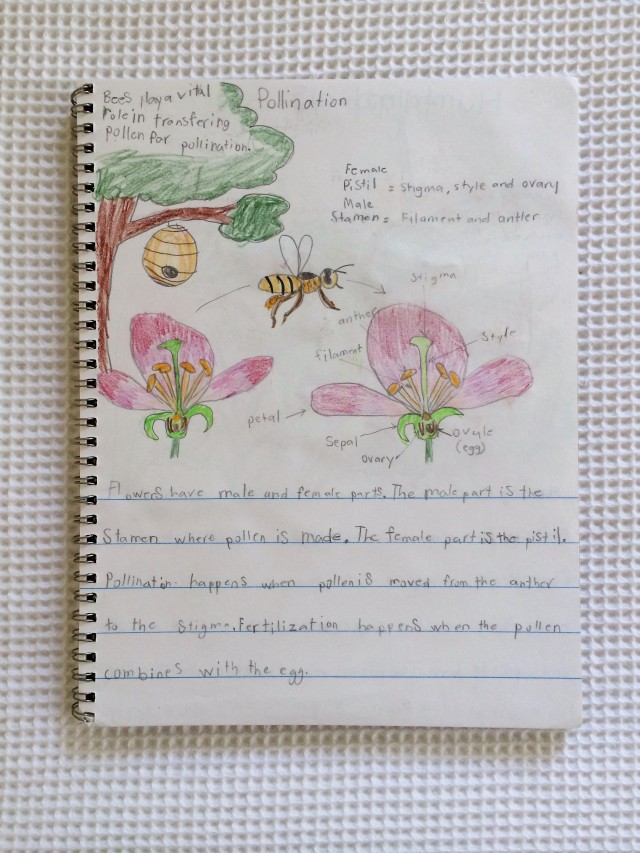 Bees play a vital
role in transferring
pollen for pollination.
Pollination
Female
Pistil = Stigma, style and ovary
Male
Stamen = Filament and antler
Stigma
anther
filament
Style
petal
Sepal
ovary
ovule
(egg)
Flowers have male and female parts. The male part is the
Stamen where pollen is made. The female part is the pistil.
Pollination happens when pollen is moved from the anther
to the Stigma. Fertilization happens when the pollen
combines with the egg.